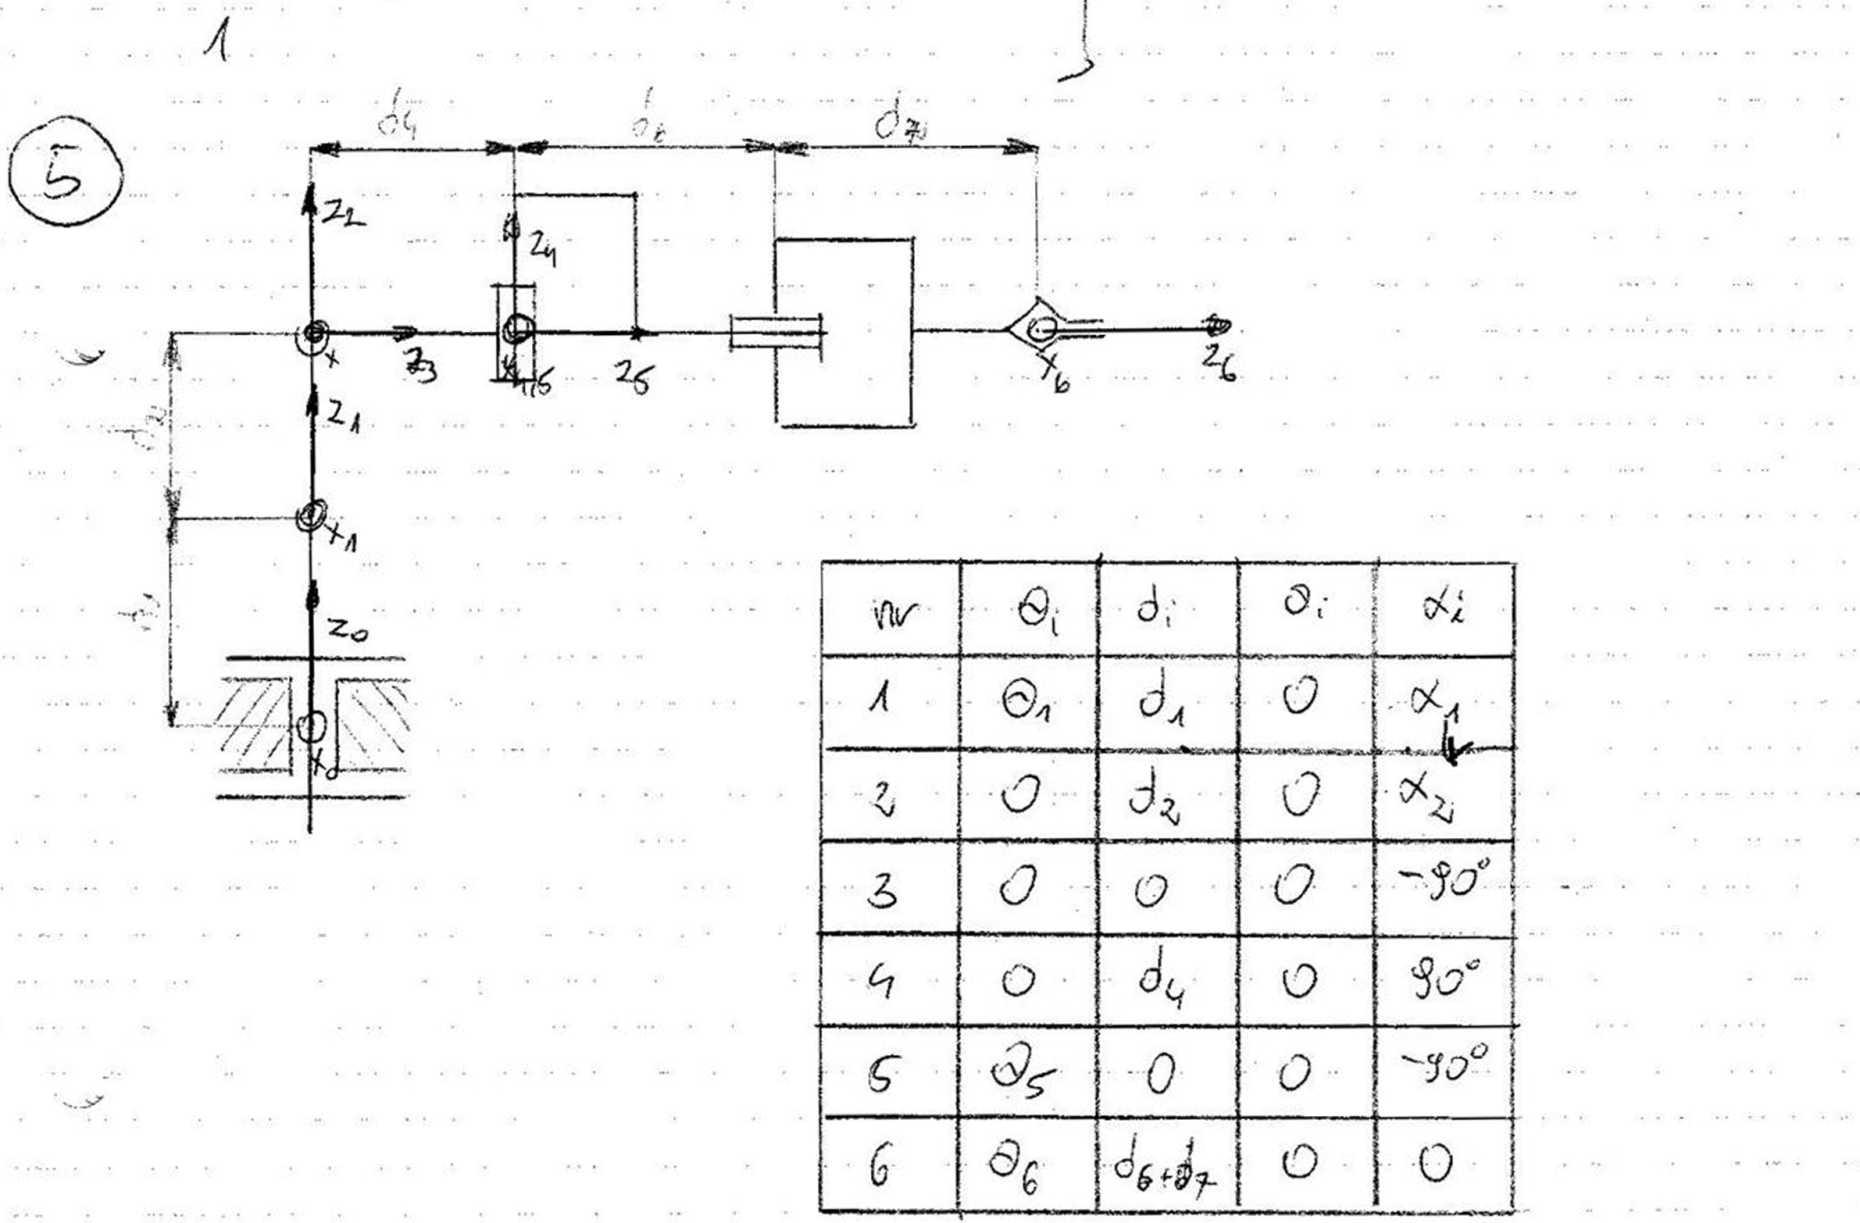 1
5
d4 d6 d7
z2
z4
x z3 x4,5 z5 x6 z6
z1
d2
x1
d1
z0
x0
nr Θi di ai αi
1 Θ1 d1 0 α1
2 0 d2 0 α2
3 0 0 0 -90°
4 0 d4 0 90°
5 Θ5 0 0 -90°
6 Θ6 d6+d7 0 0